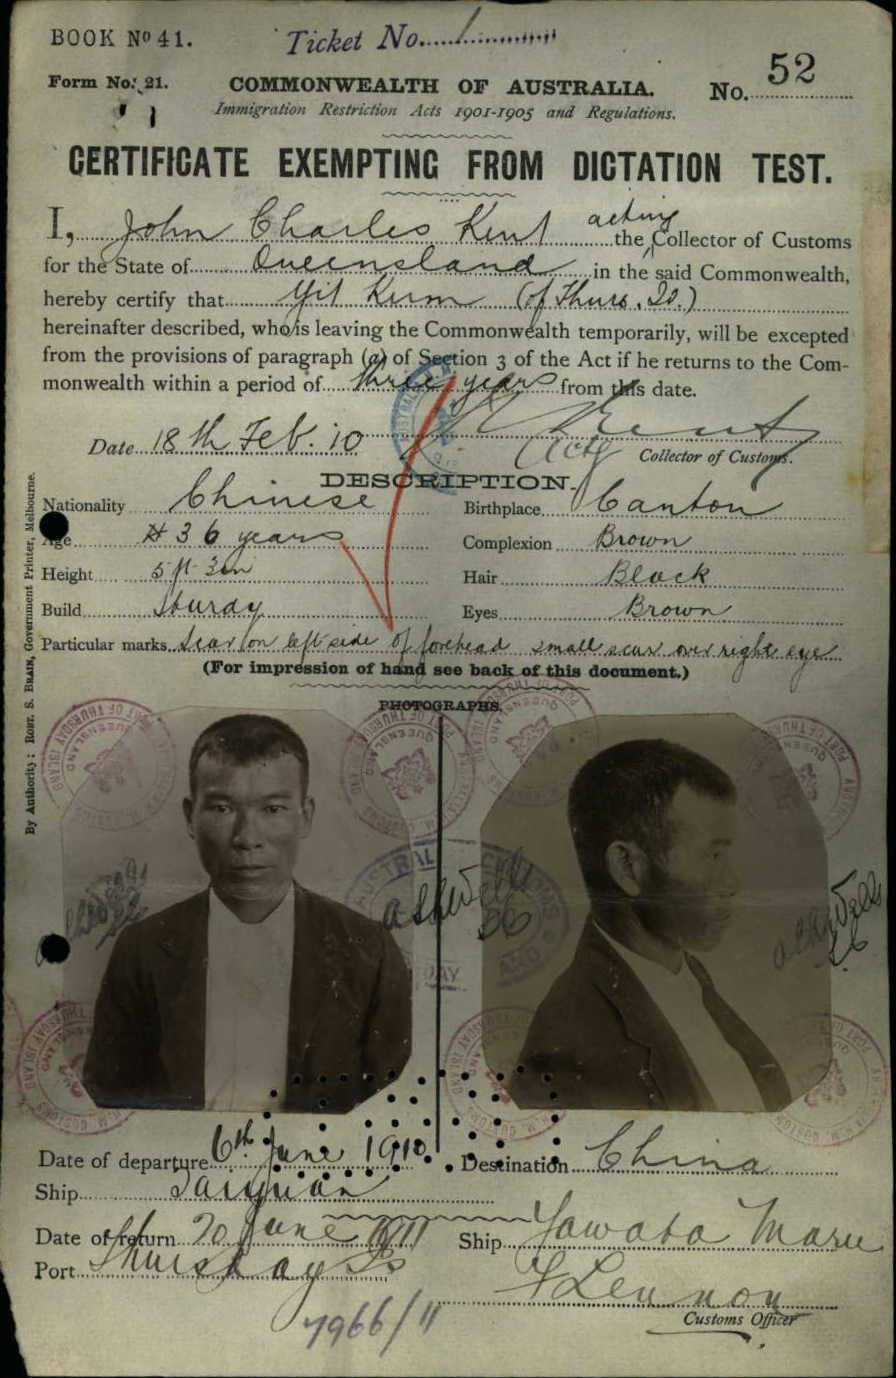 BOOK Nº 41.
Ticket No. 1
Form No. 21.
COMMONWEALTH OF AUSTRALIA.
No. 52
Immigration Restriction Acts 1901-1905 and Regulations.
CERTIFICATE EXEMPTING FROM DICTATION TEST.
I, John Charles Kent acting the Collector of Customs
for the State of Queensland in the said Commonwealth,
hereby certify that Yit Kum (of Thurs. Is.)
hereinafter described, who is leaving the Commonwealth temporarily, will be excepted
from the provisions of paragraph (a) of Section 3 of the Act if he returns to the Com-
monwealth within a period of three years from this date.
Date 18th Feb. 10
Kent
Actg Collector of Customs.
DESCRIPTION.
Nationality Chinese
Birthplace Canton
Age 36 years
Complexion Brown
Height 5 ft 3in
Hair Black
Build Sturdy
Eyes Brown
Particular marks Scar on left side of forehead small scar over right eye
(For impression of hand see back of this document.)
PHOTOGRAPHS.
PORT OF THURSDAY ISLAND
QUEENSLAND
H.M. CUSTOMS
AUSTRALIA
By Authority: ROBT. S. BRAIN, Government Printer, Melbourne.
Date of departure 6th June 1910
Destination China
Ship Taiyuan
Date of return 20 June 1911
Ship Yawata Maru
Port Thursday Is
Lennon
Customs Officer
7966/11